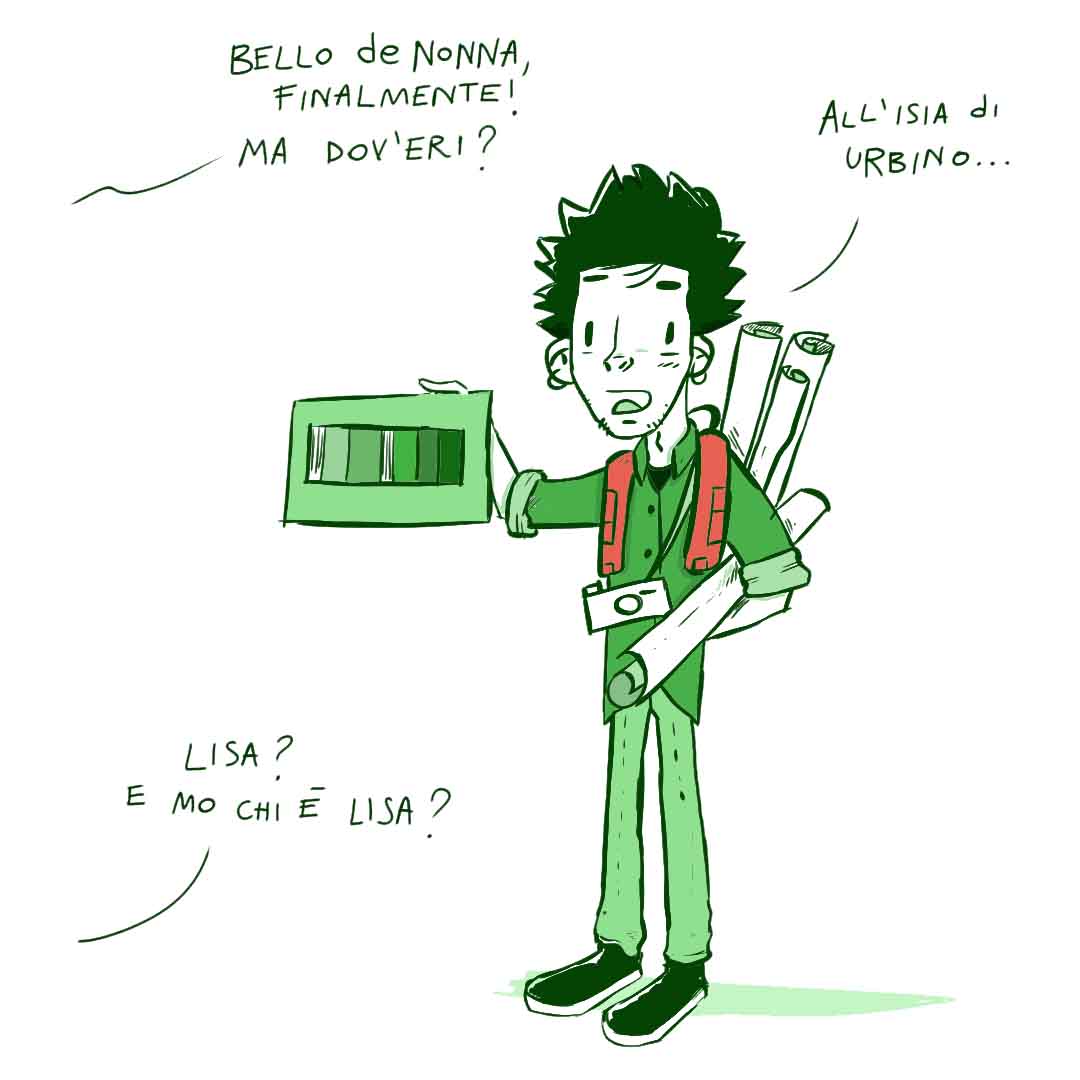 BELLO de NONNA,
FINALMENTE!
MA DOV'ERI?
ALL'ISIA di
URBINO...
LISA?
E MO CHI Ē LISA?